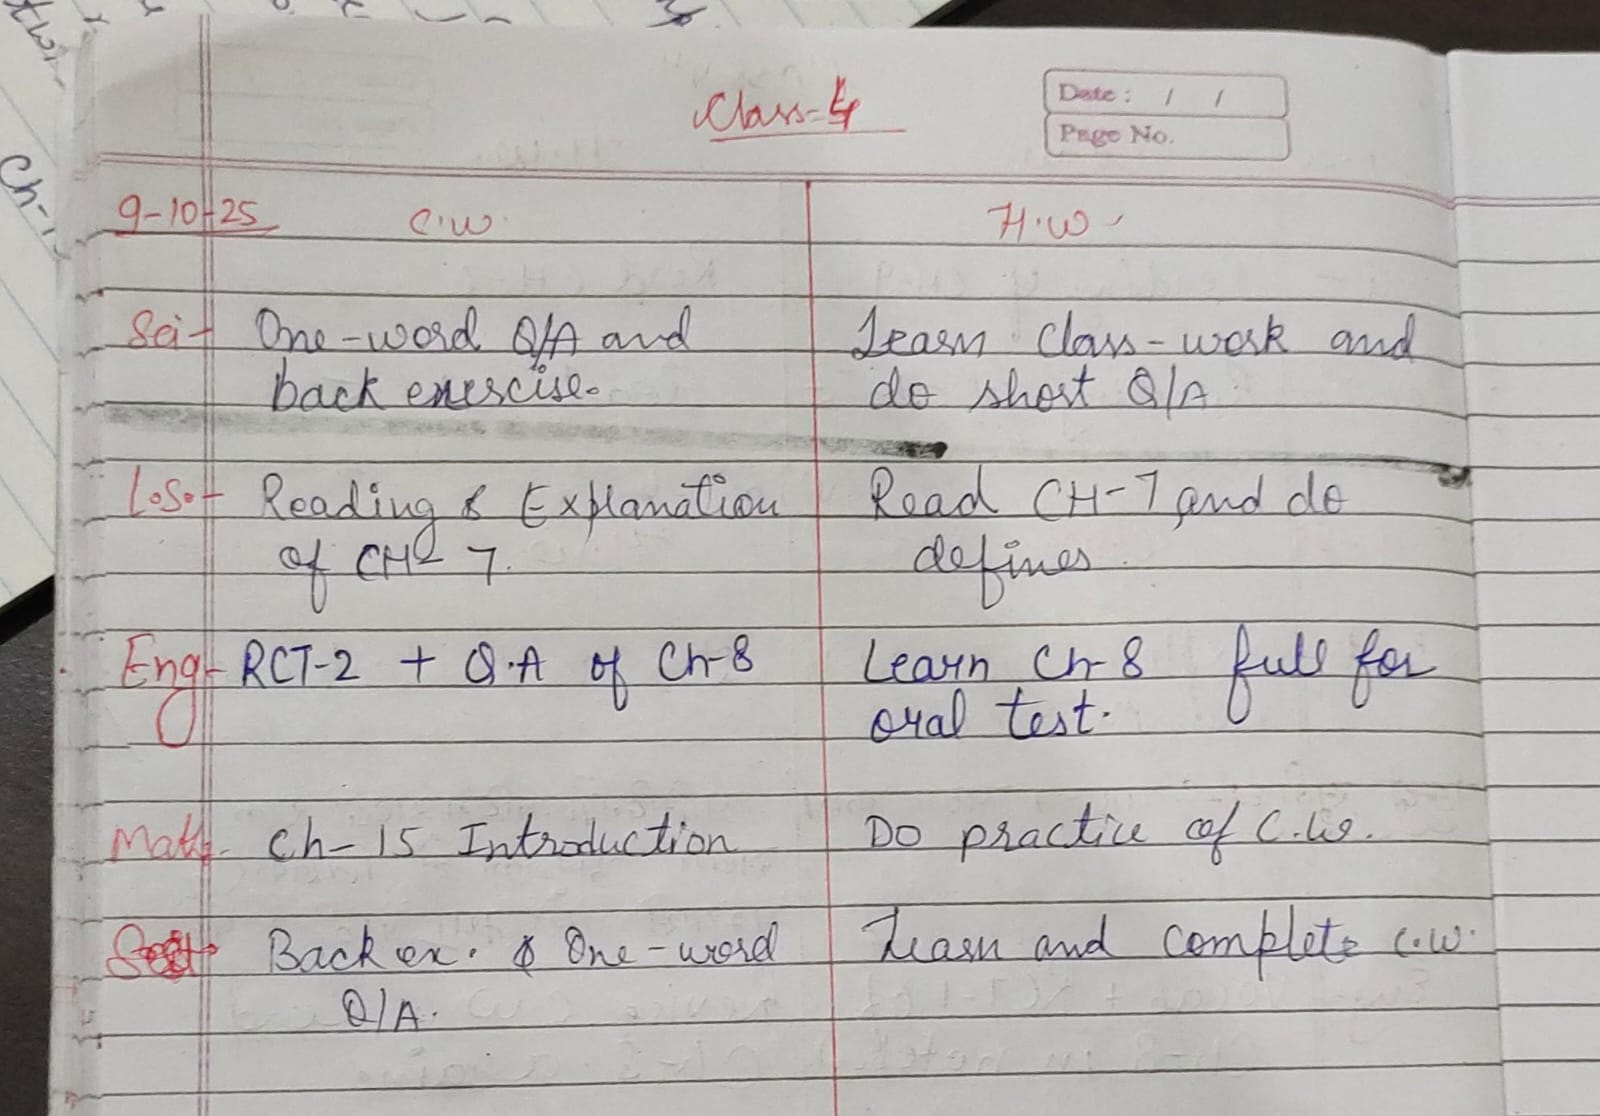 Class-4
Date : / /
Page No.
9-10-25 C.W. H.W-
Sci- One-word Q/A and Learn Class-work and
back exercise. do short Q/A.
Reading & Explanation Read CH-7 and do
of CH- 7. defines
Eng- RCT-2 + Q.A of Ch-8 Learn Ch-8 full for
oral test.
Math- Ch-15 Introduction Do practice of C.W.
Back ex. & One-word Learn and complete C.W.
Q/A.
Ch-1